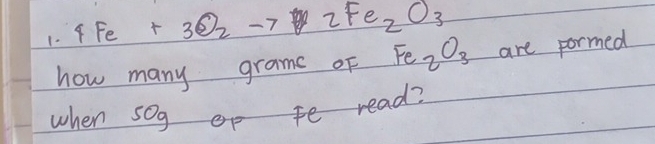 1. 4 Fe + 3O2 -> 2Fe2O3
how many grams of Fe2O3 are formed
when 50g of Fe read?